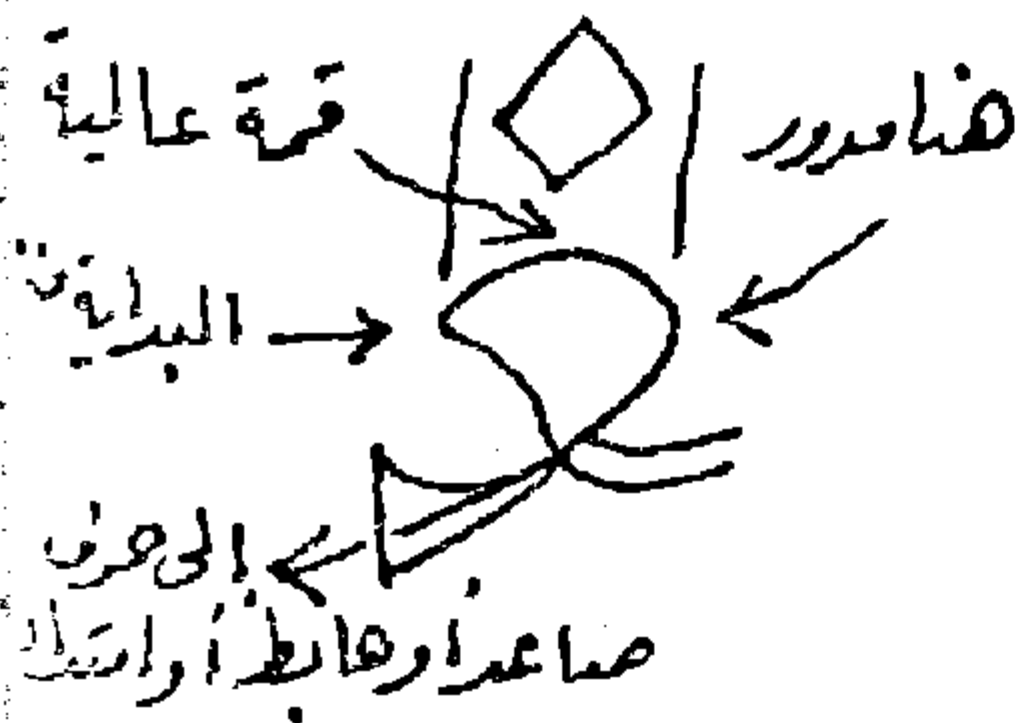 هنا مدور
قمة عالية
البداية
إلى حرف
صاعد أو هابط أو